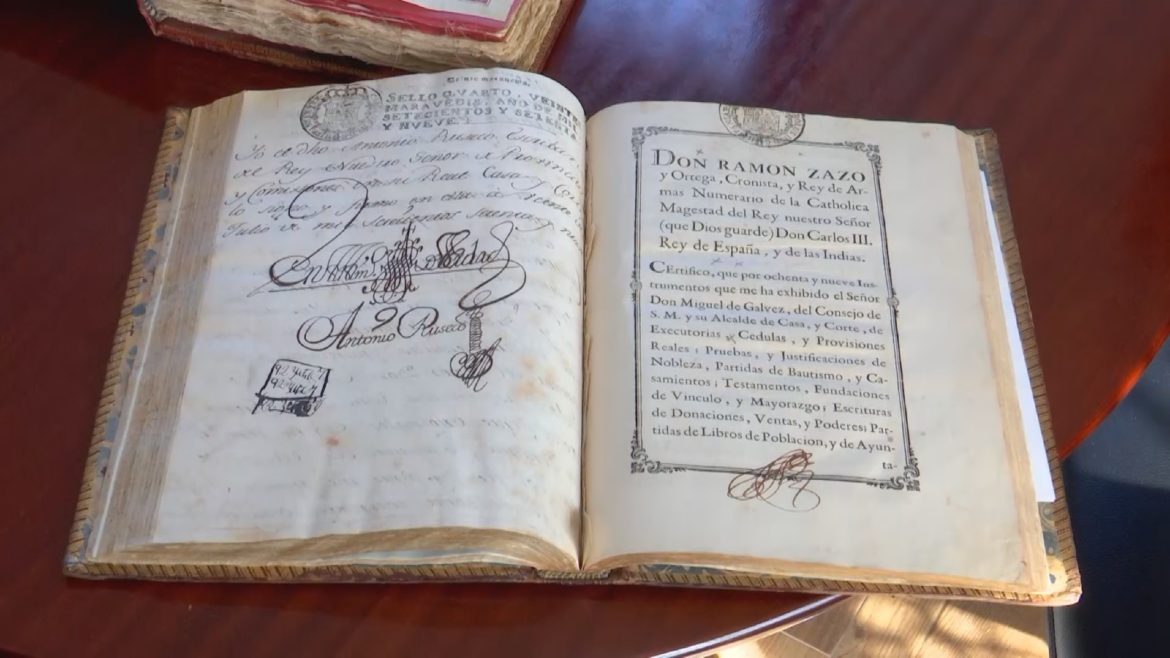 SELLO QVARTO, VEINTE
MARAVEDIS, AÑO DE MIL
SETECIENTOS Y SETENTA
Y NVEVE.
Yo el dho Antonio Ruseco
Rey Nuestro Señor
y Comisiones en su Real Casa y
lo signo y firmo en
Julio de mil setecientos setenta y
En testim. de Verdad
Antonio Ruseco
DON RAMON ZAZO
y Ortega, Cronista, y Rey de Ar-
mas Numerario de la Catholica
Magestad del Rey nuestro Señor
(que Dios guarde) Don Carlos III.
Rey de España, y de las Indias.
CErtifico, que por ochenta y nueve Ins-
trumentos que me ha exhibido el Señor
Don Miguel de Galvez, del Consejo de
S. M. y su Alcalde de Casa, y Corte, de
Executorias, Cedulas, y Provisiones
Reales; Pruebas, y Justificaciones de
Nobleza, Partidas de Bautismo, y Ca-
samientos; Testamentos, Fundaciones
de Vinculo, y Mayorazgo; Escrituras
de Donaciones, Ventas, y Poderes; Par-
tidas de Libros de Poblacion, y de Ayun-
ta-